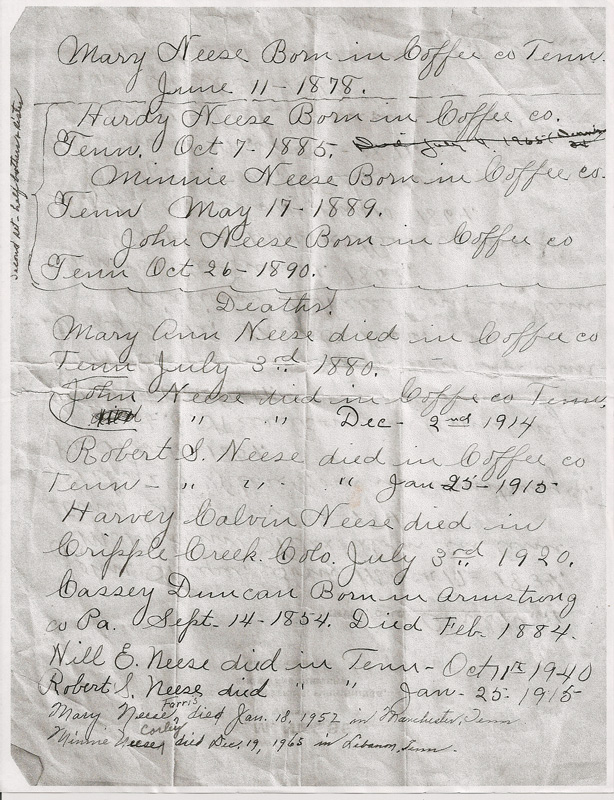 Mary Neese Born in Coffee co Tenn.
June 11-1878.
Hardy Neese Born in Coffee co.
Tenn. Oct 7-1885. Died July 1965
Minnie Neese Born in Coffee co.
Tenn May 17-1889.
John Neese Born in Coffee co
Tenn Oct 26-1890.
second set - half brothers & sister
Deaths.
Mary Ann Neese died in Coffee co
Tenn July 3rd 1880.
John Neese died in Coffe co Tenn.
" " Dec- 2nd 1914
Robert S. Neese died in Coffee co
Tenn- " " " Jan 25-1915
Harvey Calvin Neese died in
Cripple Creek. Colo. July 3rd 1920.
Cassey Duncan Born in Armstrong
co Pa. Sept-14-1854. Died Feb- 1884.
Will E. Neese died in Tenn- Oct 1940
Robert S. Neese died " " Jan-25-1915
Mary Neese Farris died Jan. 18, 1952 in Manchester, Tenn.
Minnie Neese Corley died Dec. 19, 1965 in Lebanon, Tenn.